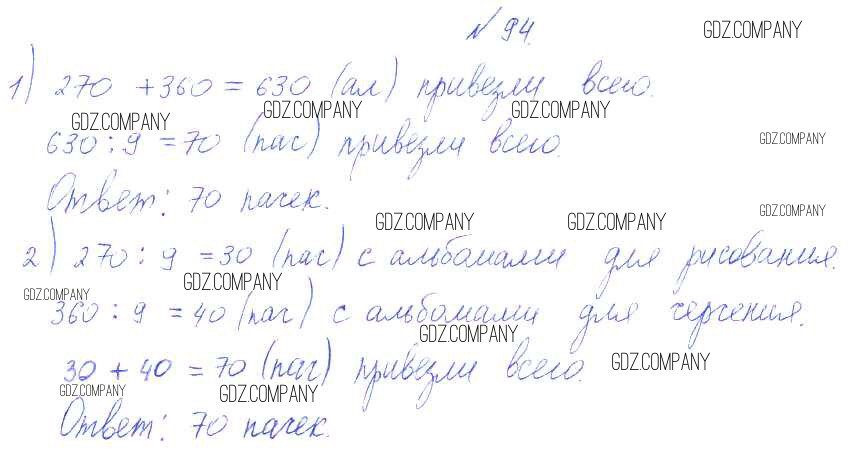 № 94. GDZ.COMPANY
1) 270 + 360 = 630 (ал) привезли всего.
GDZ.COMPANY GDZ.COMPANY GDZ.COMPANY
630 : 9 = 70 (пас) привезли всего. GDZ.COMPANY
Ответ: 70 пачек.
GDZ.COMPANY GDZ.COMPANY GDZ.COMPANY
2) 270 : 9 = 30 (пас) с альбомами для рисования.
GDZ.COMPANY GDZ.COMPANY
360 : 9 = 40 (пач) с альбомами для черчения.
GDZ.COMPANY
30 + 40 = 70 (пач) привезли всего. GDZ.COMPANY
GDZ.COMPANY GDZ.COMPANY
Ответ: 70 пачек.